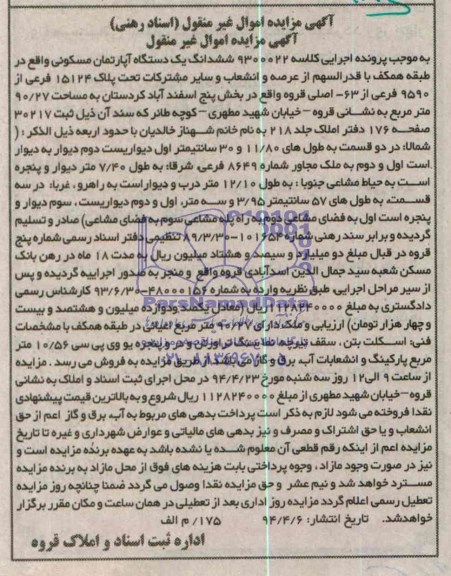 آگهی مزایده اموال غیر منقول (اسناد رهنی)
آگهی مزایده اموال غیر منقول
به موجب پرونده اجرایی کلاسه ۹۳۰۰۰۲۲ ششدانگ یک دستگاه آپارتمان مسکونی واقع در
طبقه همکف با قدرالسهم از عرصه و انشعاب و سایر مشترکات تحت پلاک ۱۵۱۲۴ فرعی از
۹۵۹۰ فرعی از ۶۳- اصلی قروه واقع در بخش پنج اسفند آباد کردستان به مساحت ۹۰/۲۷
متر مربع به نشانی قروه – خیابان شهید مطهری – کوچه طائر که سند آن ذیل ثبت ۳۰۲۱۷
صفحه ۱۷۶ دفتر املاک جلد ۲۱۸ به نام خانم شهناز خالدیان با حدود اربعه ذیل الذکر : (
شمالا: در دو قسمت به طول های ۱۱/۸۰ و ۳۰ سانتیمتر اول دیواریست دوم دیوار به دیوار
.است اول و دوم به ملک مجاور شماره ۸۶۴۹ فرعی، شرقا: به طول ۷/۴۰ متر دیوار و پنجره
است به حیاط مشاعی جنوبا : به طول ۱۲/۱۰ متر درب و دیوار است به راهرو ، غربا: در سه
قسمت، به طول های ۵۷ سانتیمتر ۳/۹۵ و سه متر، اول و دوم دیواریست ، سوم دیوار و
پنجره است اول به فضای مشاعی دوم به راه پله مشاعی سوم به فضای مشاعی) صادر و تسلیم
گردیده و برابر سند رهنی شماره ۱۰۱۶۵۴-۸۹/۳/۳۰ تنظیمی دفتر اسناد رسمی شماره پنج
قروه در قبال مبلغ دو میلیارد و سیصد و هشتاد میلیون ریال به مدت ۱۸ ماه در رهن بانک
مسکن شعبه سید جمال الدین اسدآبادی قروه واقع و منجر به صدور اجراییه گردیده و پس
از سیر مراحل اجرایی، طبق نظریه وارده به شماره ۴۸۰۰۰۱۵۶-۹۳/۶/۳۰ کارشناس رسمی
دادگستری به مبلغ ۱۱۲۸۲۴۰۰۰۰ ریال (معادل یکصد ودوازده میلیون و هشتصد و بیست
و چهار هزار تومان) ارزیابی و ملک دارای ۹۰/۲۷ متر مربع اعیان در طبقه همکف با مشخصات
فنی: اسکلت بتن ، سقف تیرچه، نما سنگ تراورتن و در و پنجره یو وی پی سی ۱۰/۵۶ متر
مربع پارکینگ و انشعابات آب، برق و گاز می باشد از طریق مزایده به فروش می رسد . مزایده
از ساعت ۹ الی ۱۲ روز سه شنبه مورخ ۹۴/۴/۲۳ در محل اجرای ثبت اسناد و املاک به نشانی
قروه – خیابان شهید مطهری از مبلغ ۱۱۲۸۲۴۰۰۰۰ ریال شروع و به بالاترین قیمت پیشنهادی
نقدا فروخته می شود لازم به ذکر است پرداخت بدهی های مربوط به آب، برق و گاز اعم از حق
انشعاب و یا حق اشتراک و مصرف و نیز بدهی های مالیاتی و عوارض شهرداری و غیره تا تاریخ
مزایده اعم از اینکه رقم قطعی آن معلوم شده یا نشده باشد به عهده برنده مزایده است و
نیز در صورت وجود مازاد ، وجوه پرداختی بابت هزینه های فوق از محل مازاد به برنده مزایده
مسترد خواهد شد و نیم عشر و حق مزایده نقدا وصول می گردد ضمنا چنانچه روز مزایده
تعطیل رسمی اعلام گردد مزایده روز اداری بعد از تعطیلی در همان ساعت و مکان مقرر برگزار
خواهدشد. تاریخ انتشار: ۹۴/۴/۶ ۱۷۵/ م الف
اداره ثبت اسناد و املاک قروه